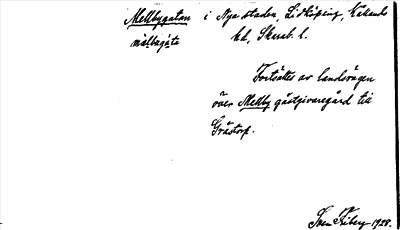 Mellbygatan i Nya staden, Lidköping, Kållands
målbagáta hd, Skarab. l.
Fortsättes av landsvägen
över Mellby gästgivaregård till
Grästorp.
Sven Friberg 1928.